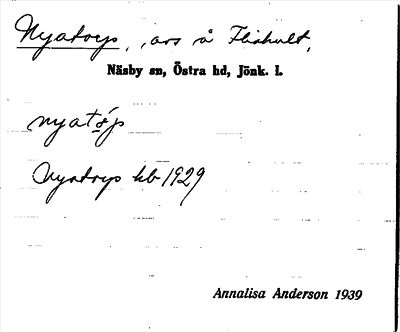 Nyatorp, avs å Flishult,
Näsby sn, Östra hd, Jönk. l.
nyatǫ́p
Nyatorp kb 1929
Annalisa Anderson 1939